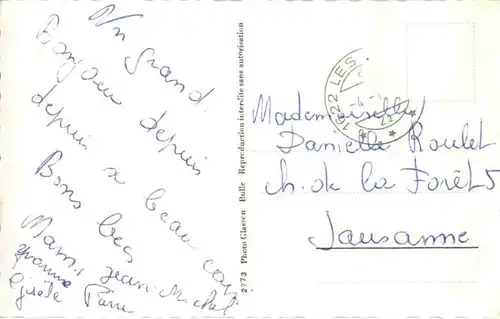 Un grand
Bonjour depuis
depuis
beau coin
Bons becs
Mami Jean-Michel
Yvonne
Gisèle
2773 Photo Glasson Bulle Reproduction interdite sans autorisation
1622 LES
Mademoiselle
Danielle Roulet
ch. de la Forêt 5
Lausanne